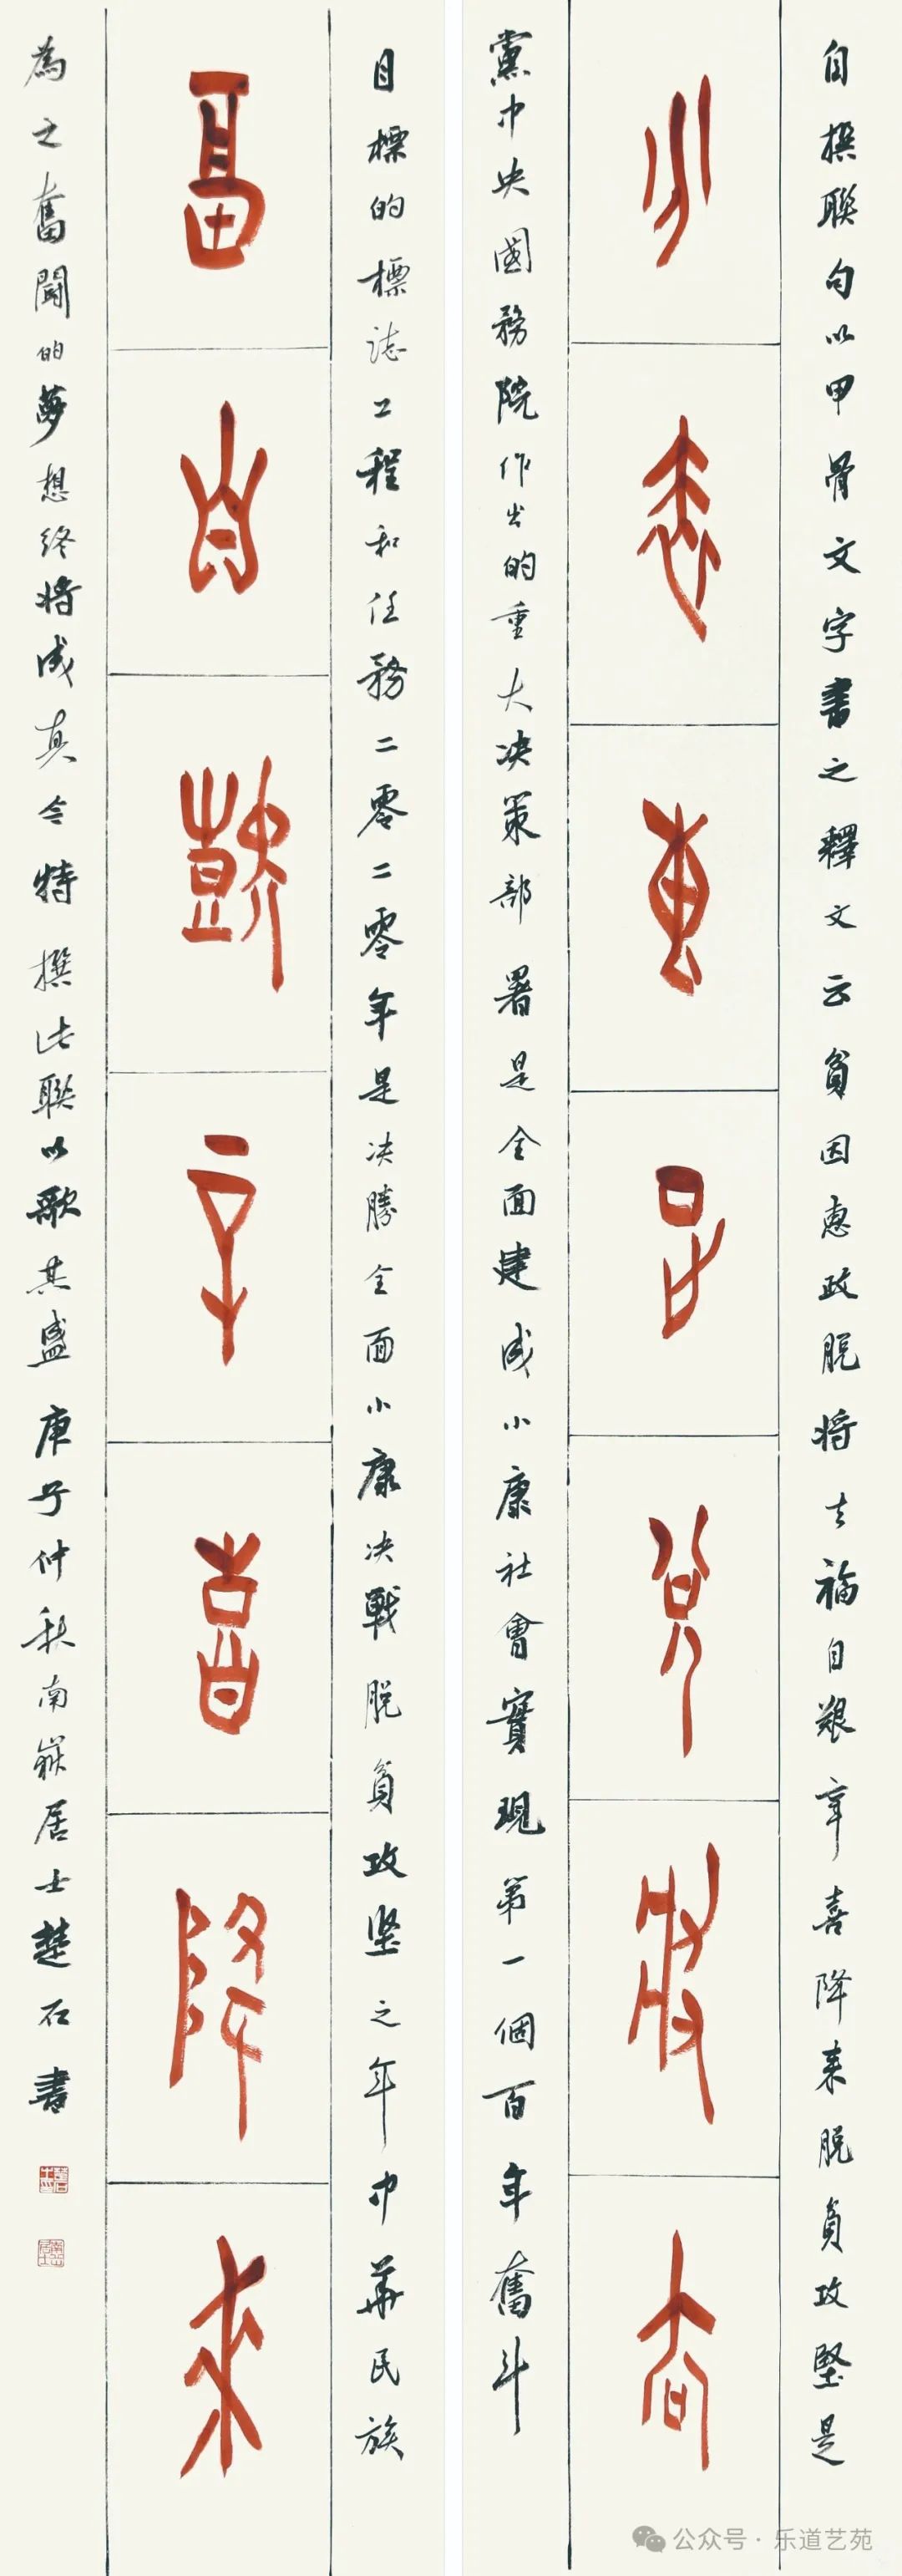 自撰聯句以甲骨文字書之釋文云貧因惠政脱將去福自艱辛喜降来脱貧攻堅是
貧因惠政脱將去
黨中央國務院作出的重大决策部署是全面建成小康社會實現第一個百年奮斗
目標的標誌工程和任務二零二零年是决勝全面小康决戰脱貧攻坚之年中華民族
福自艱辛喜降来
為之奮鬪的夢想終將成真今特撰此聯以歌其盛庚子仲秋南嶽居士楚石書
公众号 · 乐道艺苑